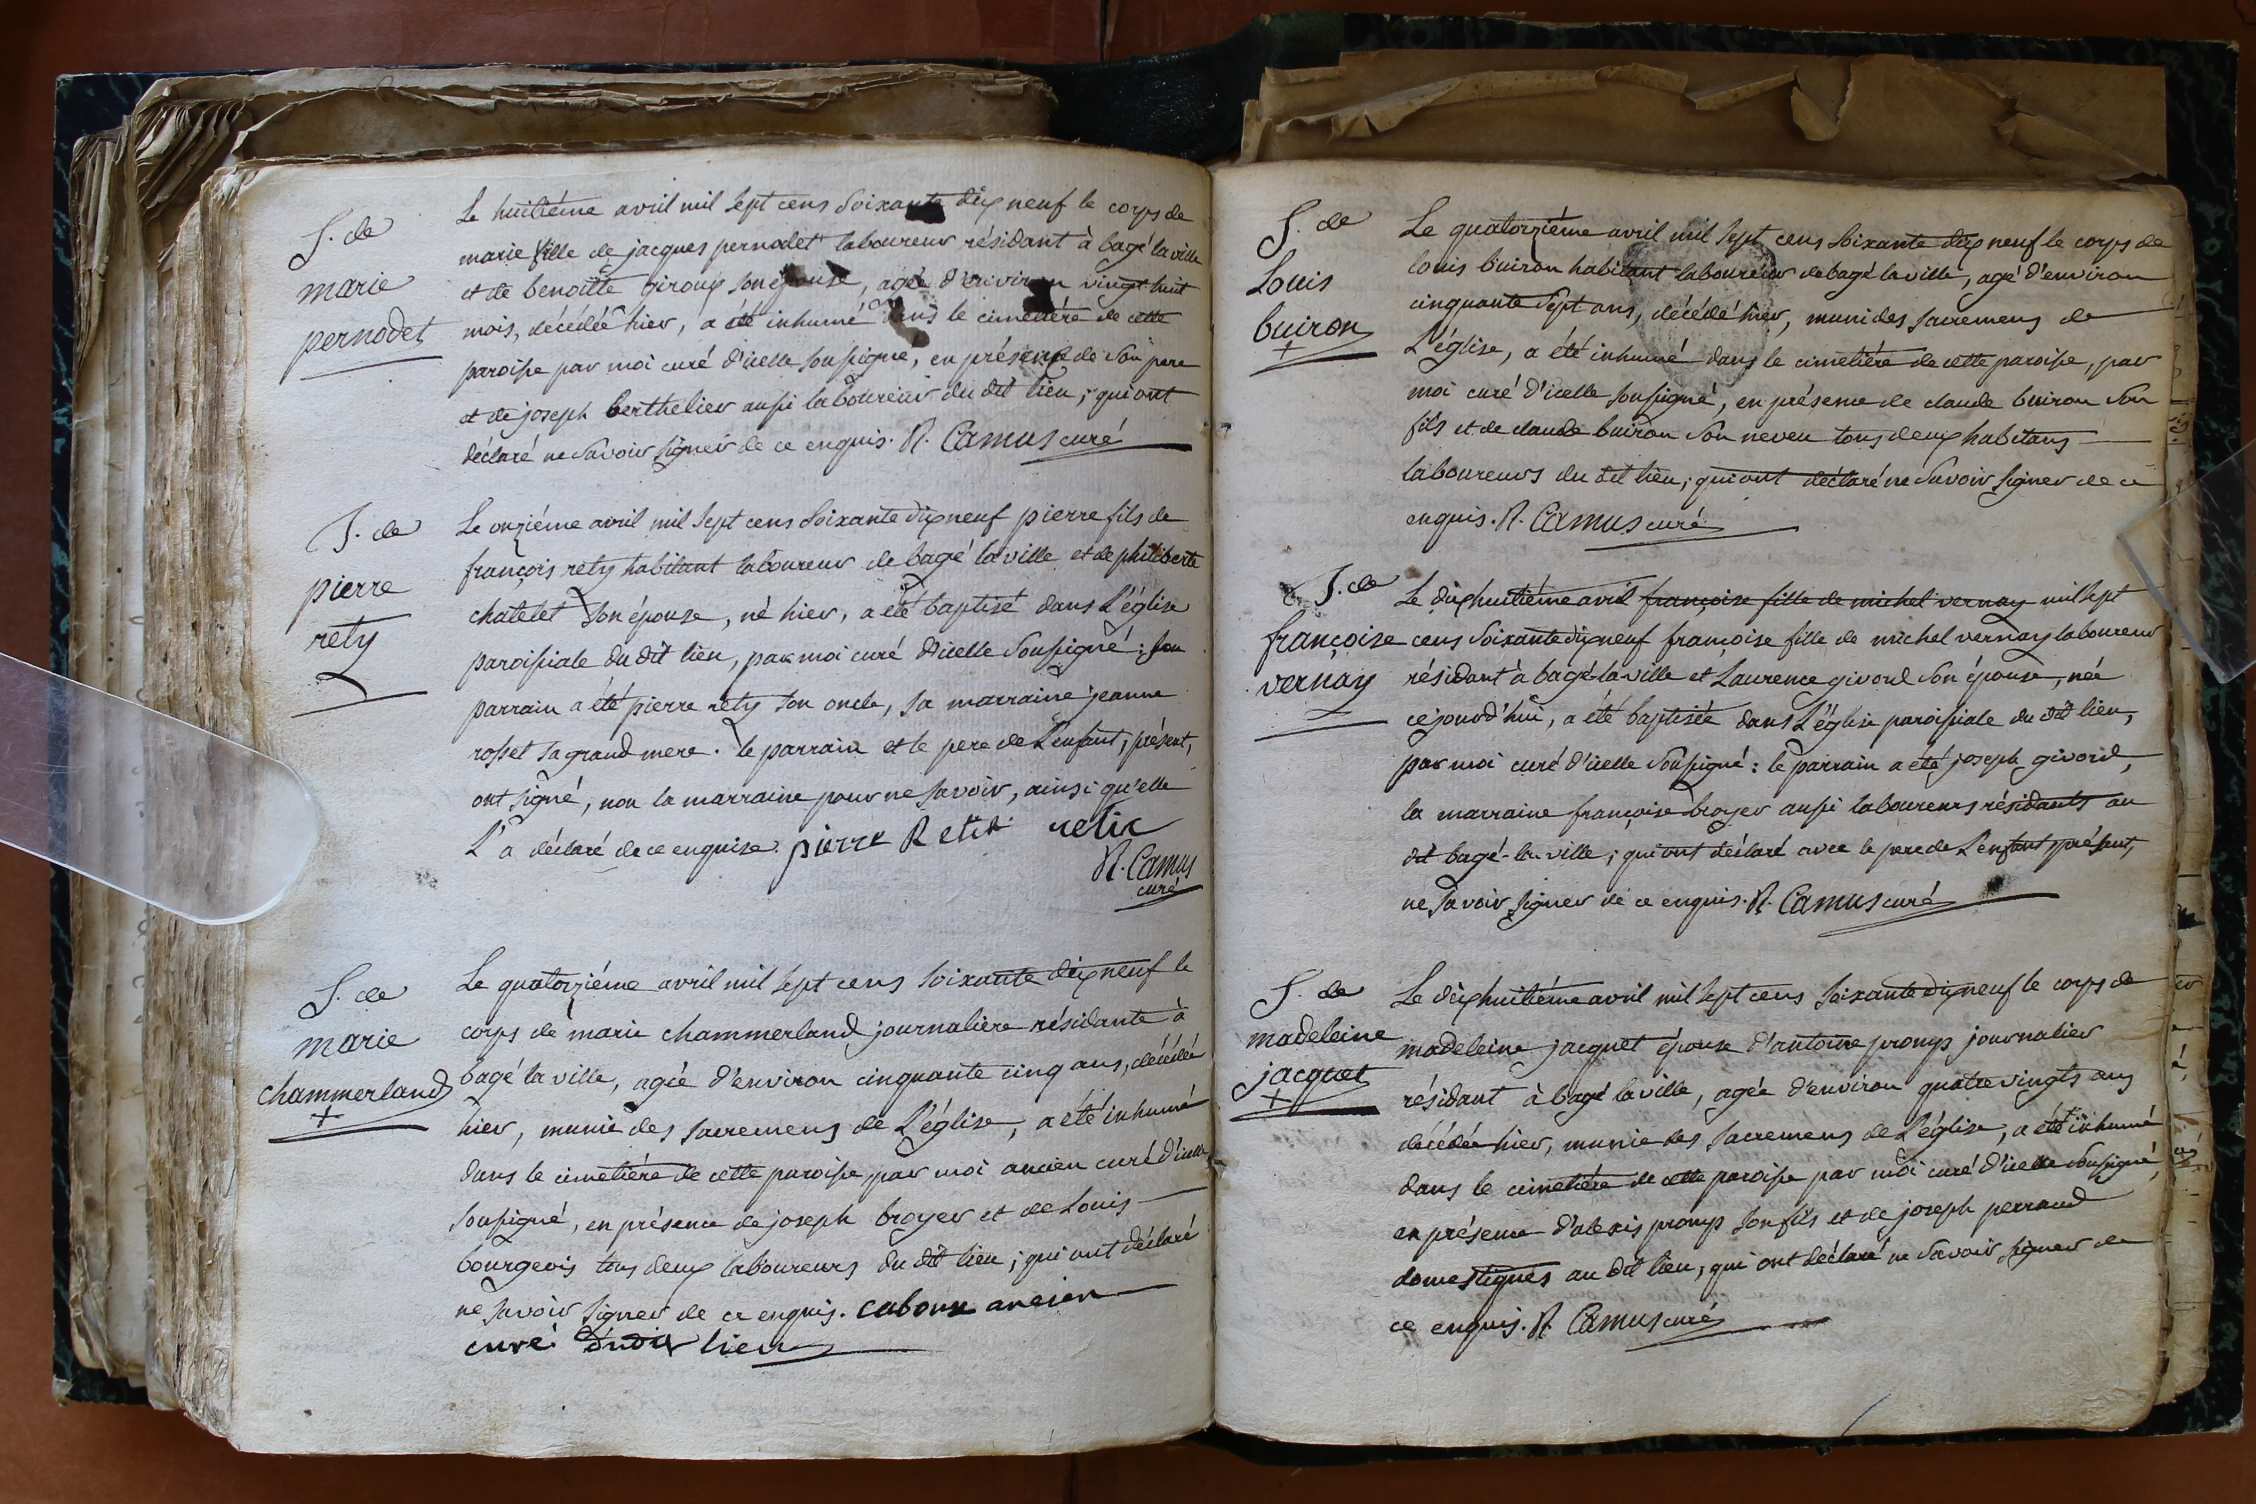 S. de
marie
pernodet
Le huitiéme avril mil sept cens soixante dix neuf le corps de
marie fille de jacques pernodet laboureur résidant à bagé la ville
et de benoitte giroux son épouse, agée d'environ vingt huit
mois, décédée hier, a été inhumé dans le cimetiére de cette
paroisse par moi curé d'icelle soussigné, en présence de son pere
et de joseph berthelier aussi laboureur du dit lieu, qui ont
déclaré ne savoir signer de ce enquis. R. Camus curé
S. de
pierre
rety
Le onziéme avril mil sept cens soixante dix neuf pierre fils de
françois rety habitant laboureur de bagé la ville et de philiberte
chatelet son épouse, né hier, a été baptisé dans L'église
paroissiale du dit lieu, par moi curé d'icelle soussigné; son
parrain a été pierre rety son oncle, sa marraine jeanne
rosset sa grand mere. le parrain et le pere de L'enfant, présent,
ont signé, non la marraine pour ne savoir, ainsi qu'elle
L'a déclaré de ce enquise. pierre Retis retis
R. Camus
curé
S. de
marie
chammerland
+
Le quatorziéme avril mil sept cens soixante dix neuf le
corps de marie chammerland journaliere résidante à
bagé la ville, agée d'environ cinquante cinq ans, décédée
hier, munie des sacremens de L'église, a été inhumé
dans le cimetiére de cette paroisse par moi ancien curé d'icelle
soussigné, en présence de joseph broyer et de Louis
bourgeois tous deux laboureurs du dit lieu; qui ont déclaré
ne savoir signer de ce enquis. cabour ancien
curé dudit lieu
S. de
Louis
buiron
+
Le quatorziéme avril mil sept cens soixante dix neuf le corps de
louis buiron habitant laboureur de bagé la ville, agé d'environ
cinquante sept ans, décédé hier, muni des sacremens de
L'église, a été inhumé dans le cimetiére de cette paroisse, par
moi curé d'icelle soussigné, en présence de claude buiron son
fils et de claude buiron son neveu tous deux habitans
laboureurs du dit lieu, qui ont déclaré ne savoir signer de ce
enquis. R. Camus curé
S. de
françoise
vernay
Le dix huitiéme avril françoise fille de michel vernay mil sept
cens soixante dix neuf françoise fille de michel vernay laboureur
résidant à bagé-la-ville et Laurence givord son épouse, née
cejourd'hui, a été baptisée dans L'église paroissiale du dit lieu,
par moi curé d'icelle soussigné: le parrain a été joseph givord,
la marraine françoise broyer aussi laboureurs résidants au
dit bagé-la-ville; qui ont déclaré avec le pere de L'enfant présent,
ne savoir signer de ce enquis. R. Camus curé
S. de
madeleine
jacquet
+
Le dix huitiéme avril mil sept cens soixante dix neuf le corps de
madeleine jacquet épouse d'antoine promps journalier
résidant à bagé la ville, agée d'environ quatre vingts ans
décédée hier, munie des sacremens de L'église, a été inhumé
dans le cimetiére de cette paroisse par moi curé d'icelle soussigné,
en présence d'alexis promps son fils et de joseph perraud
domestiques au dit lieu, qui ont déclaré ne savoir signer de
ce enquis. R. Camus curé